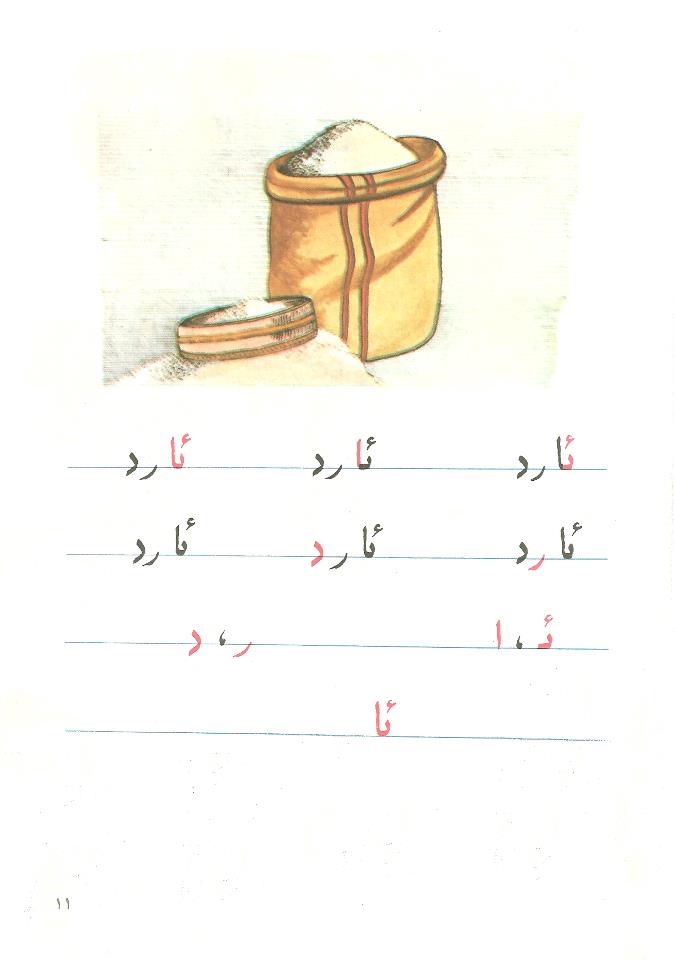 ئارد ئارد ئارد
ئارد ئارد ئارد
ئـ ، ا ر ، د
ئا
١١